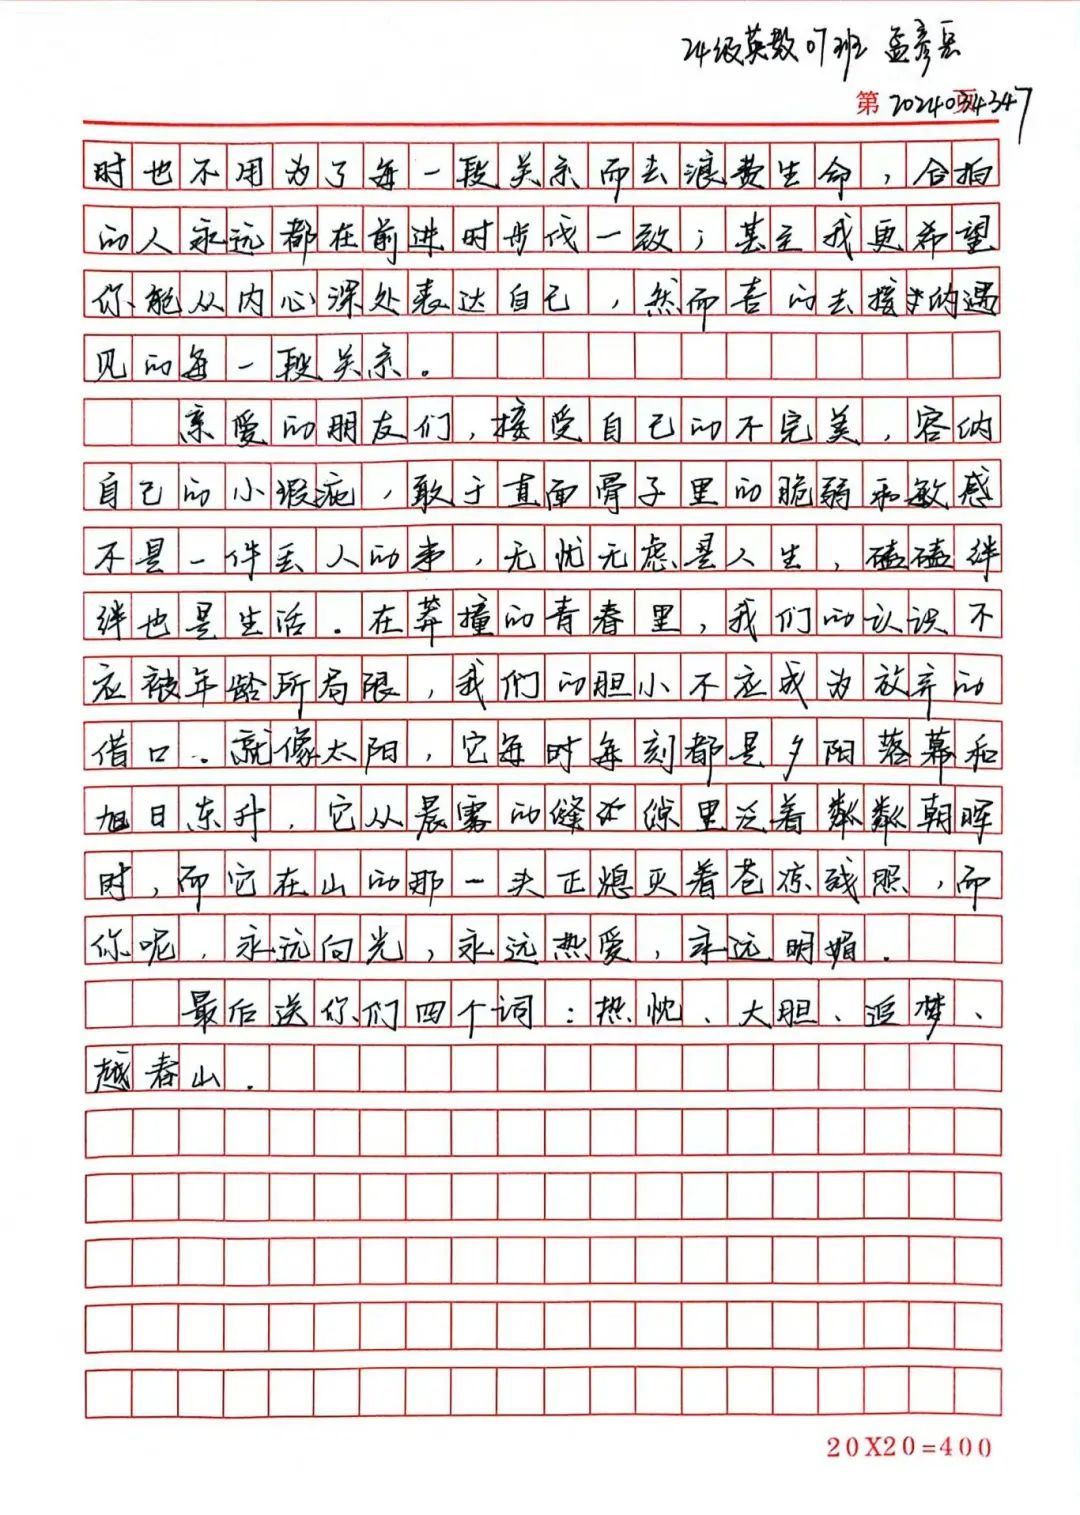 24级英数07班 孟彦岳
第 2024034347
时也不用为了每一段关系而去浪费生命，合拍
的人永远都在前进时步伐一致；甚至我更希望
你能从内心深处表达自己，然而喜的去接的遇
见的每一段关系。
亲爱的朋友们，接受自己的不完美，容纳
自己的小瑕疵，敢于直面骨子里的脆弱和敏感
不是一件丢人的事，无忧无虑是人生，磕磕绊
绊也是生活。在莽撞的青春里，我们的认识不
应被年龄所局限，我们的胆小不应成为放弃的
借口。就像太阳，它每时每刻都是夕阳落幕和
旭日东升，它从晨雾的缝隙里泛着粼粼朝晖
时，而它在山的那一头正熄灭着苍凉残照，而
你呢，永远向光，永远热爱，永远明媚。
最后送你们四个词：热忱、大胆、追梦、
越春山。
20X20=400